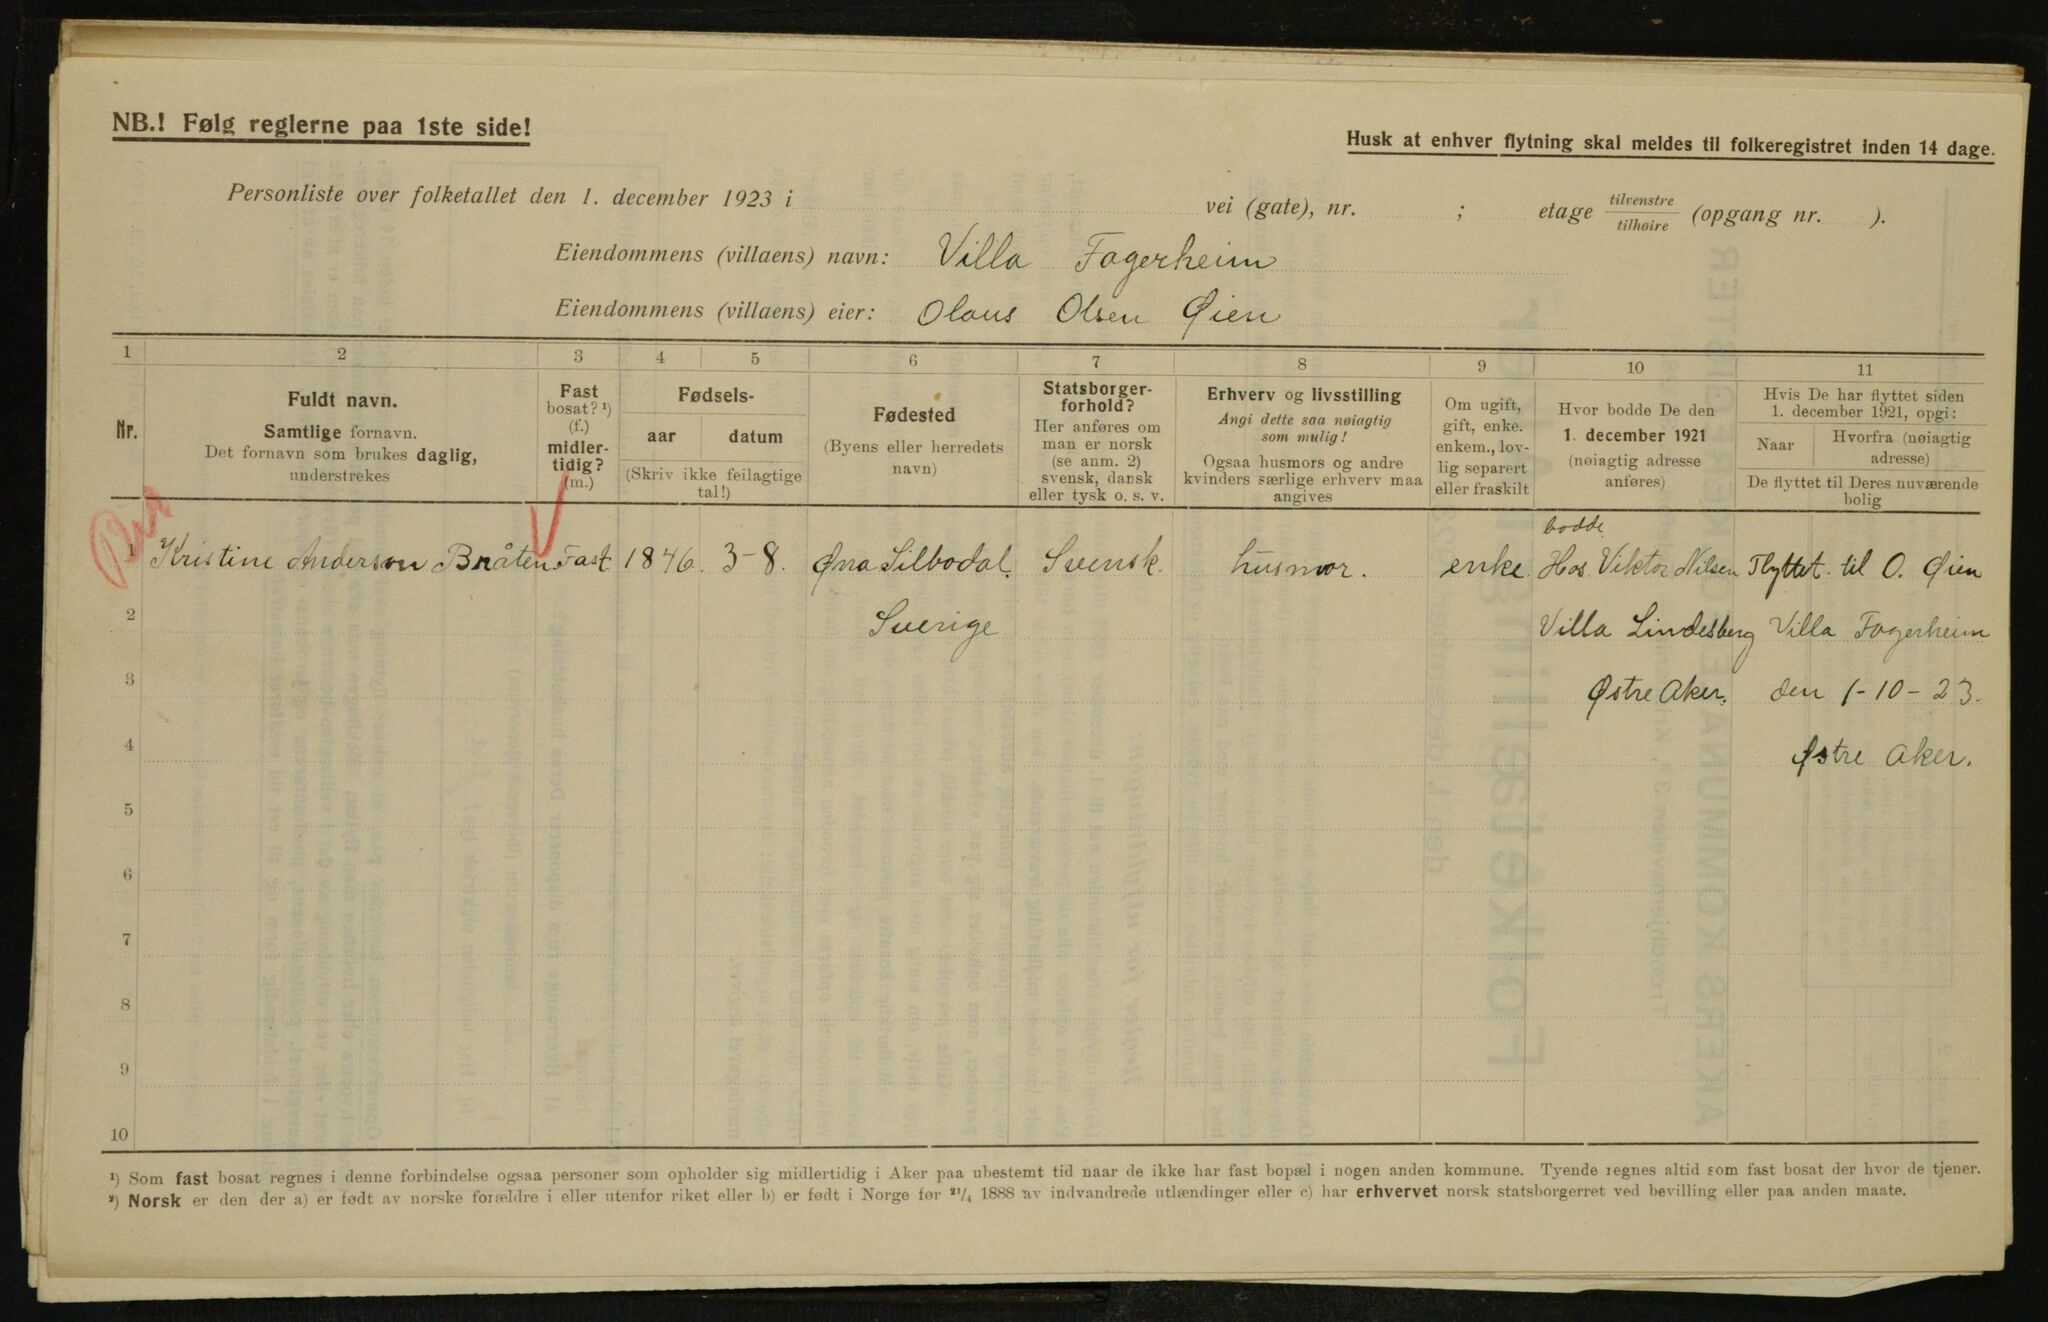 NB.! Følg reglerne paa 1ste side!
Husk at enhver flytning skal meldes til folkeregistret inden 14 dage.
Personliste over folketallet den 1. december 1923 i vei (gate), nr. ; etage tilvenstre/tilhøire (opgang nr. ).
Eiendommens (villaens) navn: Villa Fagerheim
Eiendommens (villaens) eier: Olaus Olsen Øien
1 2 3 4 5 6 7 8 9 10 11
Nr.
Fuldt navn.
Samtlige fornavn.
Det fornavn som brukes daglig,
understrekes
Fast
bosat? ¹)
(f.)
midler-
tidig?
(m.)
Fødsels-
aar datum
(Skriv ikke feilagtige
tal!)
Fødested
(Byens eller herredets
navn)
Statsborger-
forhold?
Her anføres om
man er norsk
(se anm. 2)
svensk, dansk
eller tysk o. s. v.
Erhverv og livsstilling
Angi dette saa nøiagtig
som mulig!
Ogsaa husmors og andre
kvinders særlige erhverv maa
angives
Om ugift,
gift, enke.
enkem., lov-
lig separert
eller fraskilt
Hvor bodde De den
1. december 1921
(nøiagtig adresse
anføres)
Hvis De har flyttet siden
1. december 1921, opgi:
Naar
Hvorfra (nøiagtig
adresse)
De flyttet til Deres nuværende
bolig
bodde
1 Kristine Anderson Bråten Fast 1846. 3-8. Øna Silbodal. Svensk. husmor. enke Hos Viktor Nilsen Flyttet til O. Øien
2 Sverige Villa Lindesberg Villa Fagerheim
3 Østre Aker. den 1-10-23.
4 Østre Aker.
5
6
7
8
9
10
¹) Som fast bosat regnes i denne forbindelse ogsaa personer som opholder sig midlertidig i Aker paa ubestemt tid naar de ikke har fast bopæl i nogen anden kommune. Tyende regnes altid som fast bosat der hvor de tjener.
²) Norsk er den der a) er født av norske forældre i eller utenfor riket eller b) er født i Norge før ²¹/₄ 1888 av indvandrede utlændinger eller c) har erhvervet norsk statsborgerret ved bevilling eller paa anden maate.